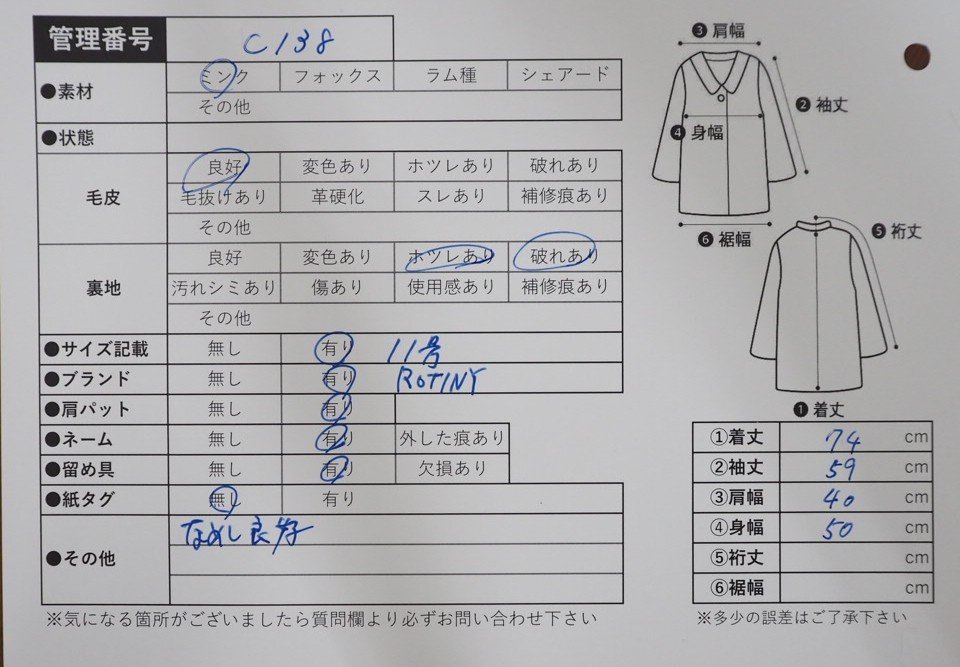 管理番号 C138
❸肩幅
●素材 ミンク フォックス ラム種 シェアード
その他
❷袖丈
●状態
❹身幅
毛皮 良好 変色あり ホツレあり 破れあり
毛抜けあり 革硬化 スレあり 補修痕あり
その他
❻裾幅
❺裄丈
裏地 良好 変色あり ホツレあり 破れあり
汚れシミあり 傷あり 使用感あり 補修痕あり
その他
●サイズ記載 無し 有り 11号
●ブランド 無し 有り ROTINY
●肩パット 無し 有り
❶着丈
●ネーム 無し 有り 外した痕あり
●留め具 無し 有り 欠損あり
●紙タグ 無し 有り
●その他 なめし良好
①着丈 74 cm
②袖丈 59 cm
③肩幅 40 cm
④身幅 50 cm
⑤裄丈 cm
⑥裾幅 cm
※気になる箇所がございましたら質問欄より必ずお問い合わせ下さい
※多少の誤差はご了承下さい